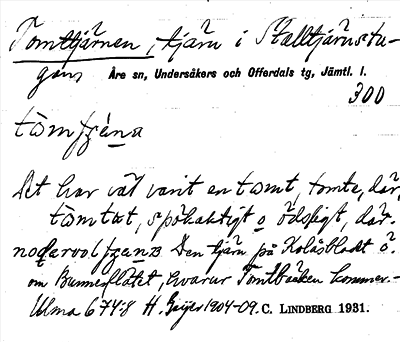 Tomttjärnen, tjärn i Stalltjärnstu-
gans Åre sn, Undersåkers och Offerdals tg, Jämtl. l.
300
Det har väl varit en tomt, tomte, där,
spökaktigt o ödsligt, där.
Den tjärn på Kolåsbladet ö.
om Bunnerflötet, hvarur Tomtbäcken kommer.-
Ulma 674:8 H. Geijer 1904-09. C. LINDBERG 1931.